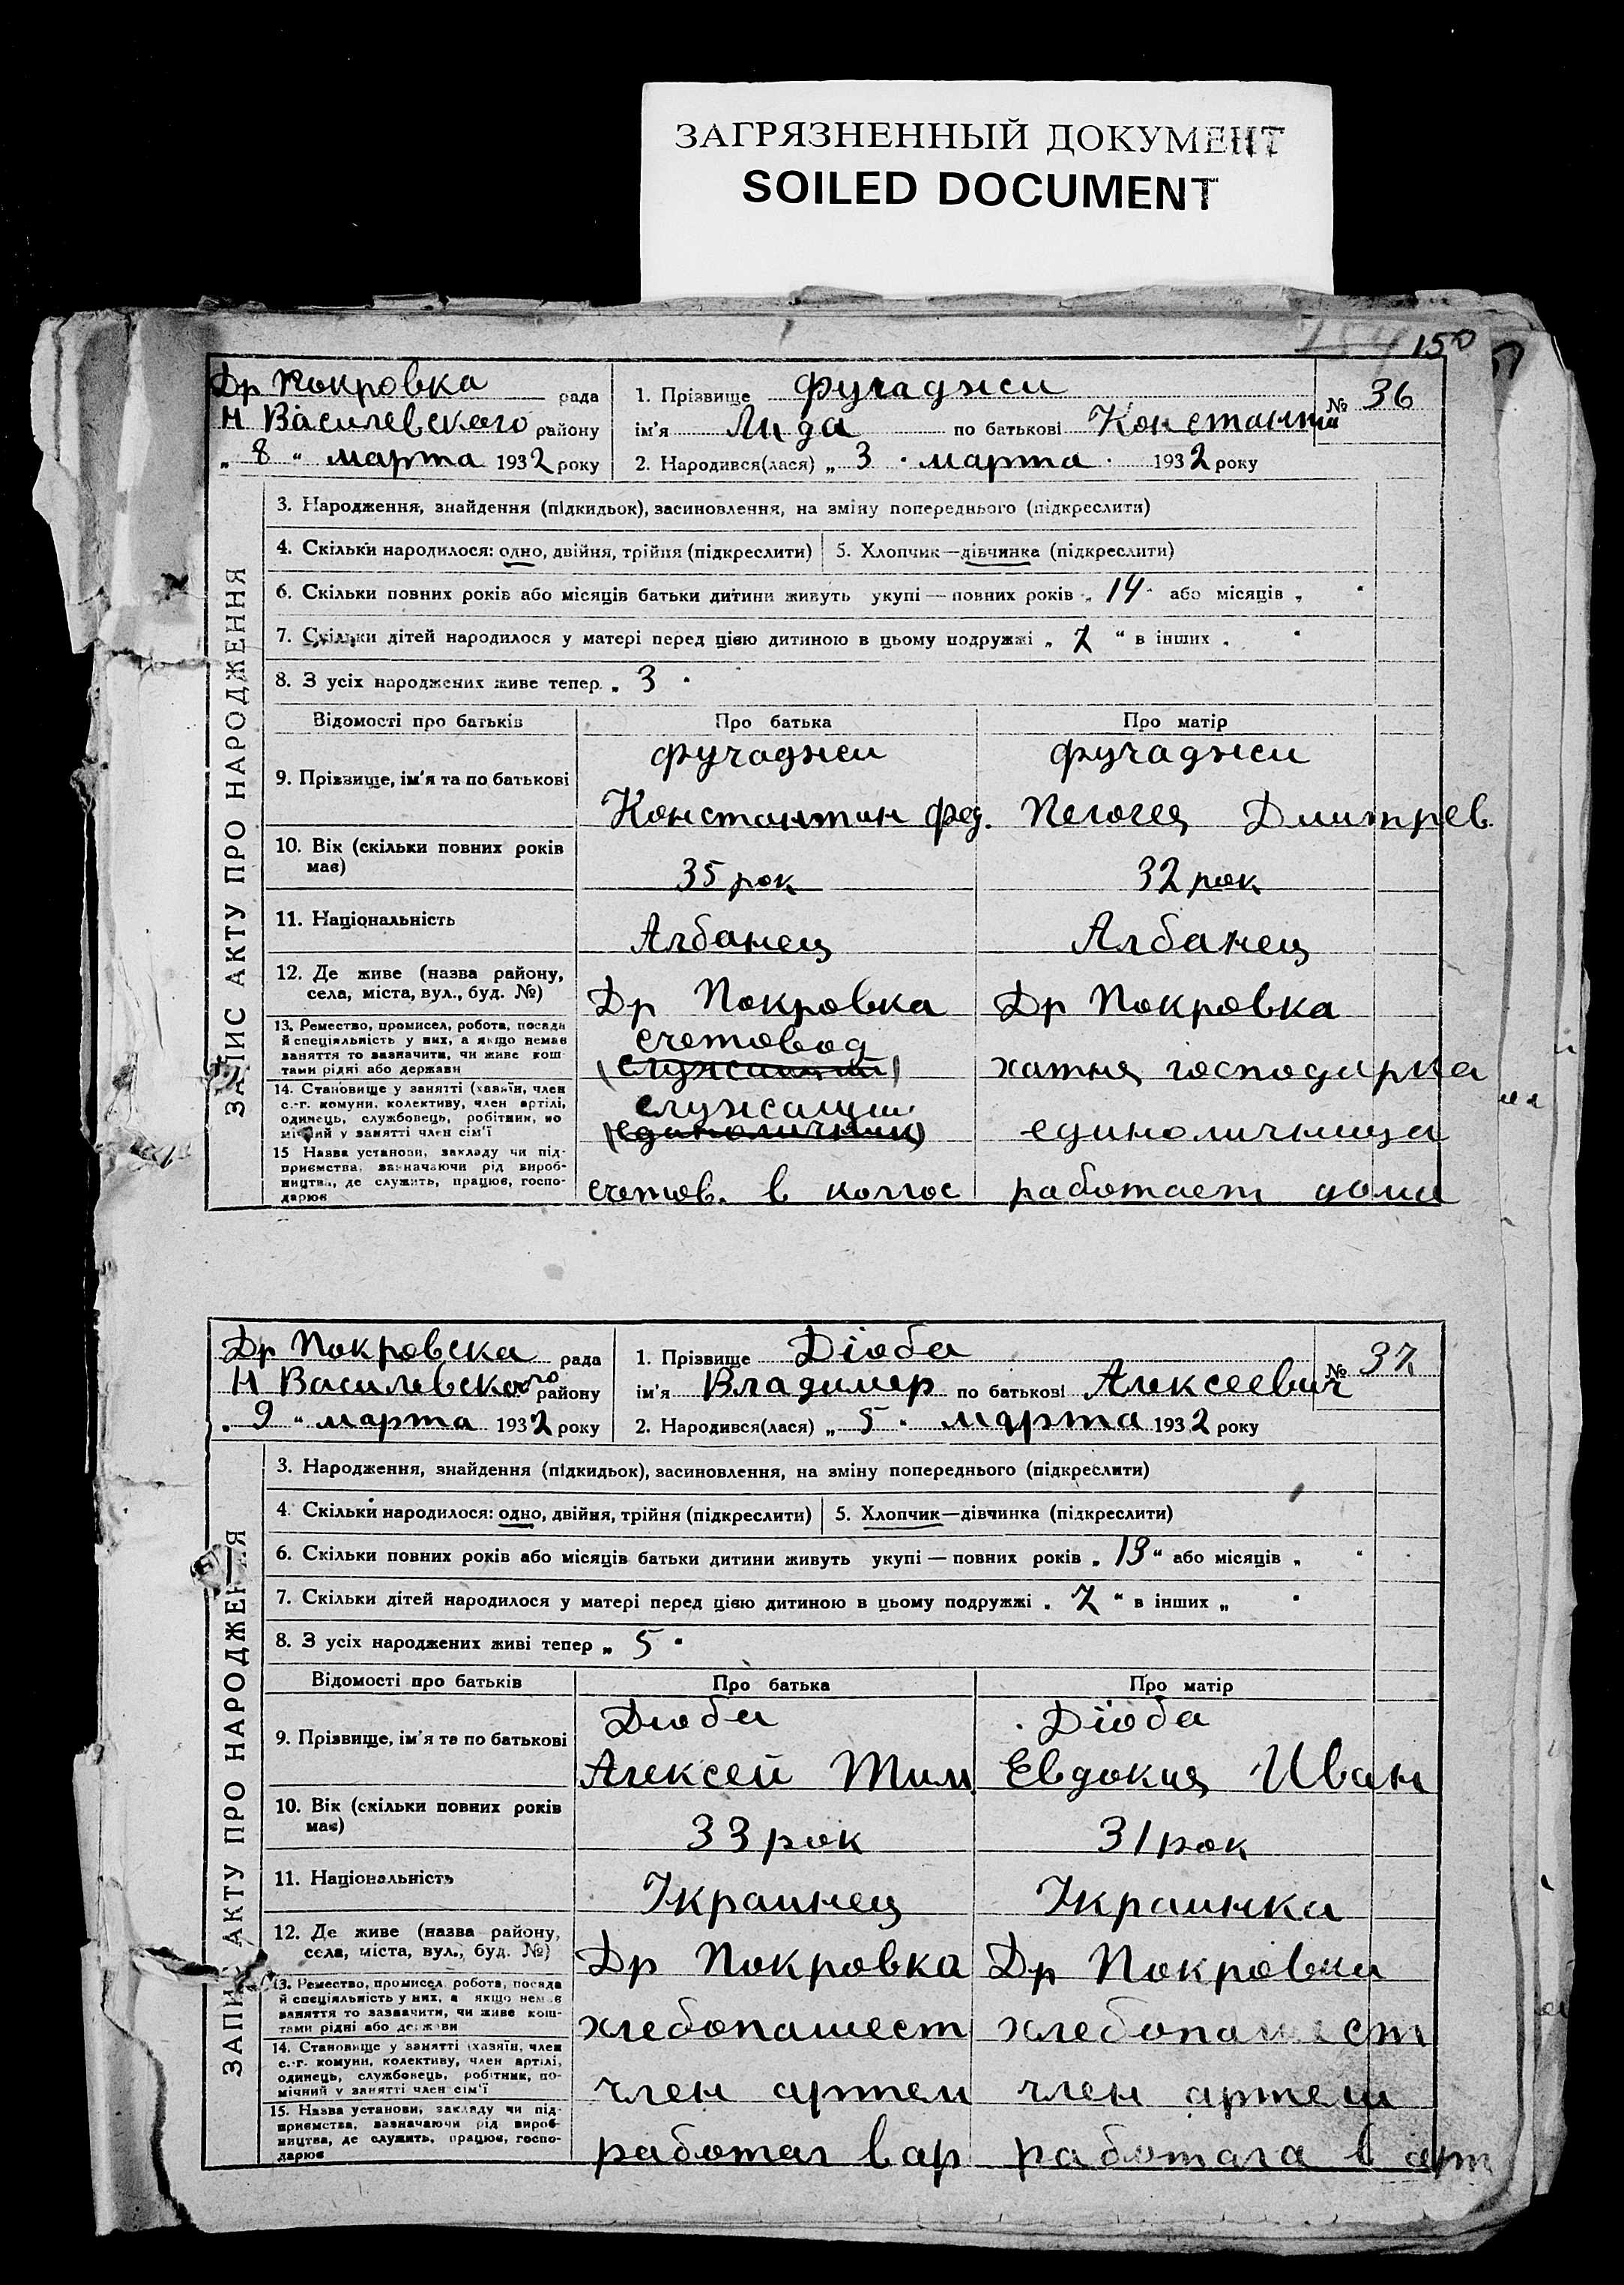 ЗАГРЯЗНЕННЫЙ ДОКУМЕНТ
SOILED DOCUMENT
150
Др Покровка рада
Н Василевского району
„ 8 “ марта 1932 року
1. Прізвище Фучаджи
ім'я Лида по батькові Константи
№ 36
2. Народився(лася) „ 3 . марта . 1932 року
ЗАПИС АКТУ ПРО НАРОДЖЕННЯ
3. Народження, знайдення (підкидьок), засиновлення, на зміну попереднього (підкреслити)
4. Скільки народилося: одно, двійня, трійня (підкреслити) 5. Хлопчик—дівчинка (підкреслити)
6. Скільки повних років або місяців батьки дитини живуть укупі — повних років „ 14 “ або місяців „ “
7. Скільки дітей народилося у матері перед цією дитиною в цьому подружжі „ 7 “ в інших „ “
8. З усіх народжених живе тепер „ 3 “
Відомості про батьків Про батька Про матір
9. Прізвище, ім'я та по батькові
Фучаджи Фучаджи
Константин Фед. Дмитрев.
10. Вік (скільки повних років має)
35 рок 32 рок
11. Національність
Албанец Албанец
12. Де живе (назва району, села, міста, вул., буд. №)
Др Покровка Др Покровка
13. Ремество, промисел, робота, посада й спеціяльність у них, а якщо немає заняття то зазначити, чи живе коштами рідні або держави
счетовод
(служащий) хатня господарка
14. Становище у занятті (хазяїн, член с.-г. комуни, колективу, член артілі, одинець, службовець, робітник, помічний у занятті член сім'ї
служащии
(единоличник) единоличница
15 Назва установи, закладу чи підприємства, зазначаючи рід виробництва, де служить, працює, господарює
счетов. в колгос работает дома
Др Покровска рада
Н Василевского району
„ 9 “ марта 1932 року
1. Прізвище Діоба
ім'я Владимер по батькові Алексеевич
№ 37
2. Народився(лася) „ 5 “ марта 1932 року
ЗАПИС АКТУ ПРО НАРОДЖЕННЯ
3. Народження, знайдення (підкидьок), засиновлення, на зміну попереднього (підкреслити)
4. Скільки народилося: одно, двійня, трійня (підкреслити) 5. Хлопчик—дівчинка (підкреслити)
6. Скільки повних років або місяців батьки дитини живуть укупі — повних років „ 13 “ або місяців „ “
7. Скільки дітей народилося у матері перед цією дитиною в цьому подружжі „ 7 “ в інших „ “
8. З усіх народжених живі тепер „ 5 “
Відомості про батьків Про батька Про матір
9. Прізвище, ім'я та по батькові
Диоба Діоба
Алексей Тим. Евдокия Иван
10. Вік (скільки повних років має)
33 рок 31 рок
11. Національність
Украинец Украинка
12. Де живе (назва району, села, міста, вул., буд. №)
Др Покровка Др Покровки
13. Ремество, промисел, робота, посада й спеціяльність у них, а якщо немає заняття то зазначити, чи живе коштами рідні або держави
хлебопашест хлебопашест
14. Становище у занятті (хазяїн, член с.-г. комуни, колективу, член артілі, одинець, службовець, робітник, помічний у занятті член сім'ї
член артели член артели
15. Назва установи, закладу чи підприємства, зазначаючи рід виробництва, де служить, працює, господарює
работал в ар работала в арт